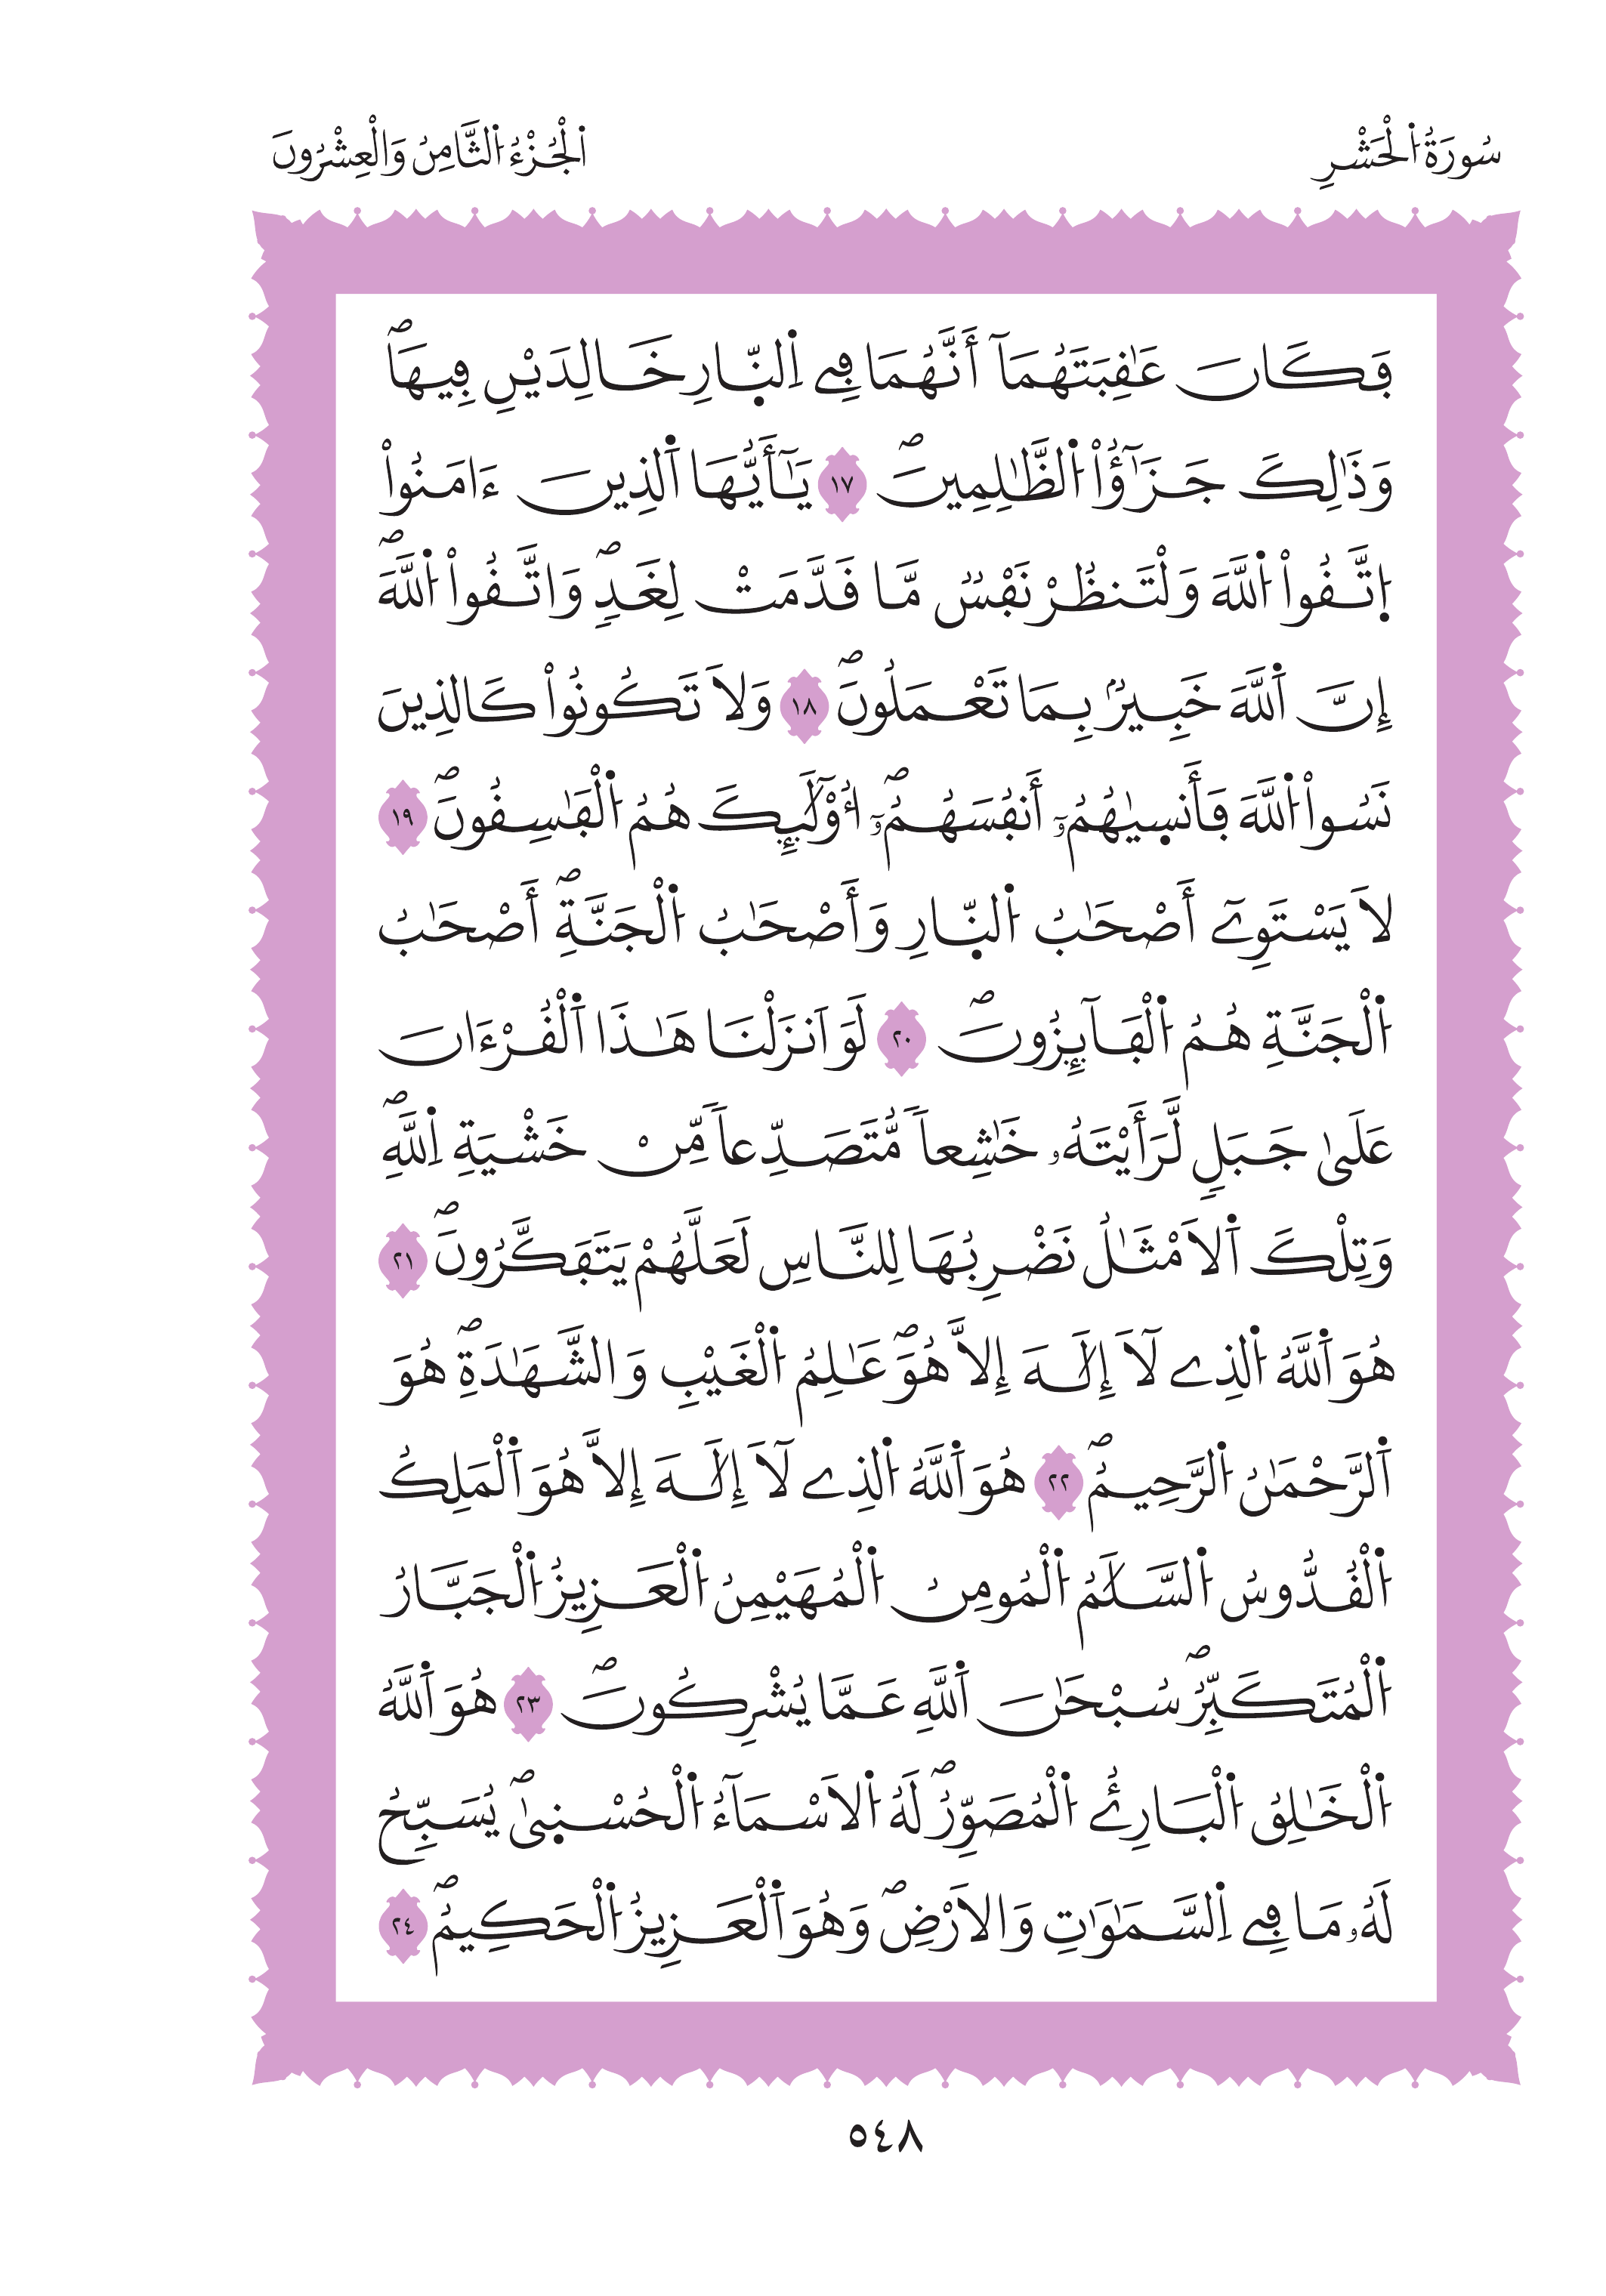 سُورَةُ اُ۬لْحَشْرِ
اَ۬لْجُزْءُ اُ۬لثَّامِنُ وَالْعِشْرُونَ
فَكَانَ عَٰقِبَتَهُمَآ أَنَّهُمَا فِے اِ۬لنّ۪ارِ خَٰلِدَيْنِ فِيهَاۖ
وَذَٰلِكَ جَزَٰٓؤُاْ اُ۬لظَّٰلِمِينَۖ ١٧ يَٰٓأَيُّهَا اَ۬لذِينَ ءَامَنُواْ
اُ۪تَّقُواْ اُ۬للَّهَ وَلْتَنظُرْ نَفْسٞ مَّا قَدَّمَتْ لِغَدٖۖ وَاتَّقُواْ اُ۬للَّهَۖ
إِنَّ اَ۬للَّهَ خَبِيرُۢ بِمَا تَعْمَلُونَۖ ١٨ وَلَا تَكُونُواْ كَالذِينَ
نَسُواْ اُ۬للَّهَ فَأَنس۪يٰهُمُۥٓ أَنفُسَهُمُۥٓۖ أُوْلَٰٓئِكَ هُمُ اُ۬لْفَٰسِقُونَۖ ١٩
لَا يَسْتَوِےٓ أَصْحَٰبُ اُ۬لنّ۪ارِ وَأَصْحَٰبُ اُ۬لْجَنَّةِۖ أَصْحَٰبُ
اُ۬لْجَنَّةِ هُمُ اُ۬لْفَآئِزُونَۖ ٢٠ لَوَ اَنزَلْنَا هَٰذَا اَ۬لْقُرْءَانَ
عَلَىٰ جَبَلٖ لَّرَأَيْتَهُۥ خَٰشِعاٗ مُّتَصَدِّعاٗ مِّنْ خَشْيَةِ اِ۬للَّهِۖ
وَتِلْكَ اَ۬لَامْثَٰلُ نَضْرِبُهَا لِلنَّاسِ لَعَلَّهُمْ يَتَفَكَّرُونَۖ ٢١
هُوَ اَ۬للَّهُ اُ۬لذِے لَآ إِلَٰهَ إِلَّا هُوَۖ عَٰلِمُ اُ۬لْغَيْبِ وَالشَّهَٰدَةِۖ هُوَ
اَ۬لرَّحْمَٰنُ اُ۬لرَّحِيمُۖ ٢٢ هُوَ اَ۬للَّهُ اُ۬لذِے لَآ إِلَٰهَ إِلَّا هُوَ اَ۬لْمَلِكُ
اُ۬لْقُدُّوسُ اُ۬لسَّلَٰمُ اُ۬لْمُومِنُ اُ۬لْمُهَيْمِنُ اُ۬لْعَزِيزُ اُ۬لْجَبَّارُ
اُ۬لْمُتَكَبِّرُۖ سُبْحَٰنَ اَ۬للَّهِ عَمَّا يُشْرِكُونَۖ ٢٣ هُوَ اَ۬للَّهُ
اُ۬لْخَٰلِقُ اُ۬لْبَارِئُ اُ۬لْمُصَوِّرُۖ لَهُ اُ۬لَاسْمَآءُ اُ۬لْحُسْن۪يٰۖ يُسَبِّحُ
لَهُۥ مَا فِے اِ۬لسَّمَٰوَٰتِ وَالَارْضِۖ وَهُوَ اَ۬لْعَزِيزُ اُ۬لْحَكِيمُۖ ٢٤
٥٤٨